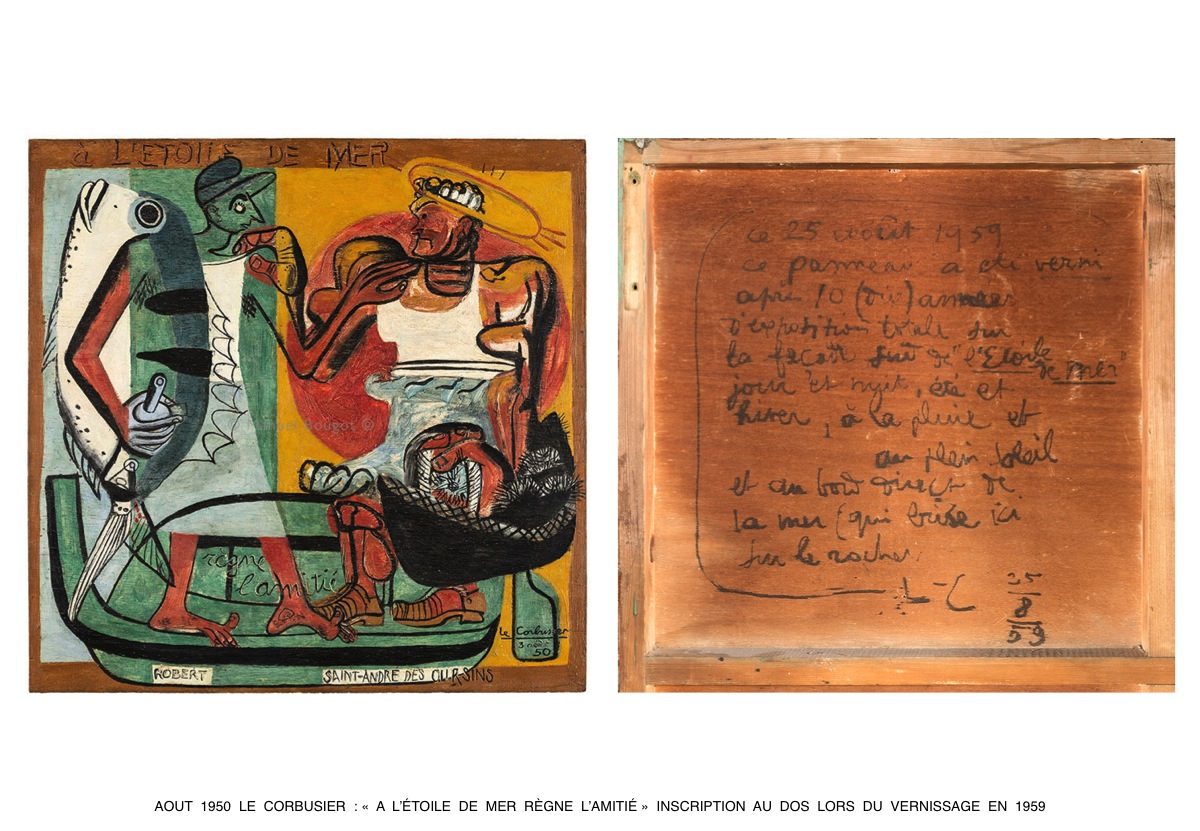 à L'ETOILE DE MER
règne
l'amitié
le Corbusier
50
ROBERT
SAINT-ANDRÉ DES OURSINS
Bougot ©
ce 25 août 1959
ce panneau a été verni
après 10 (dix) années
d'exposition totale sur
la façade sud de "l'Etoile
de Mer"
jour et nuit, été et
hiver, à la pluie et
au plein soleil
et au bord direct de
la mer (qui brise ici
sur le rocher
L-C
25
8
59
AOUT 1950 LE CORBUSIER : « A L'ÉTOILE DE MER RÈGNE L'AMITIÉ » INSCRIPTION AU DOS LORS DU VERNISSAGE EN 1959